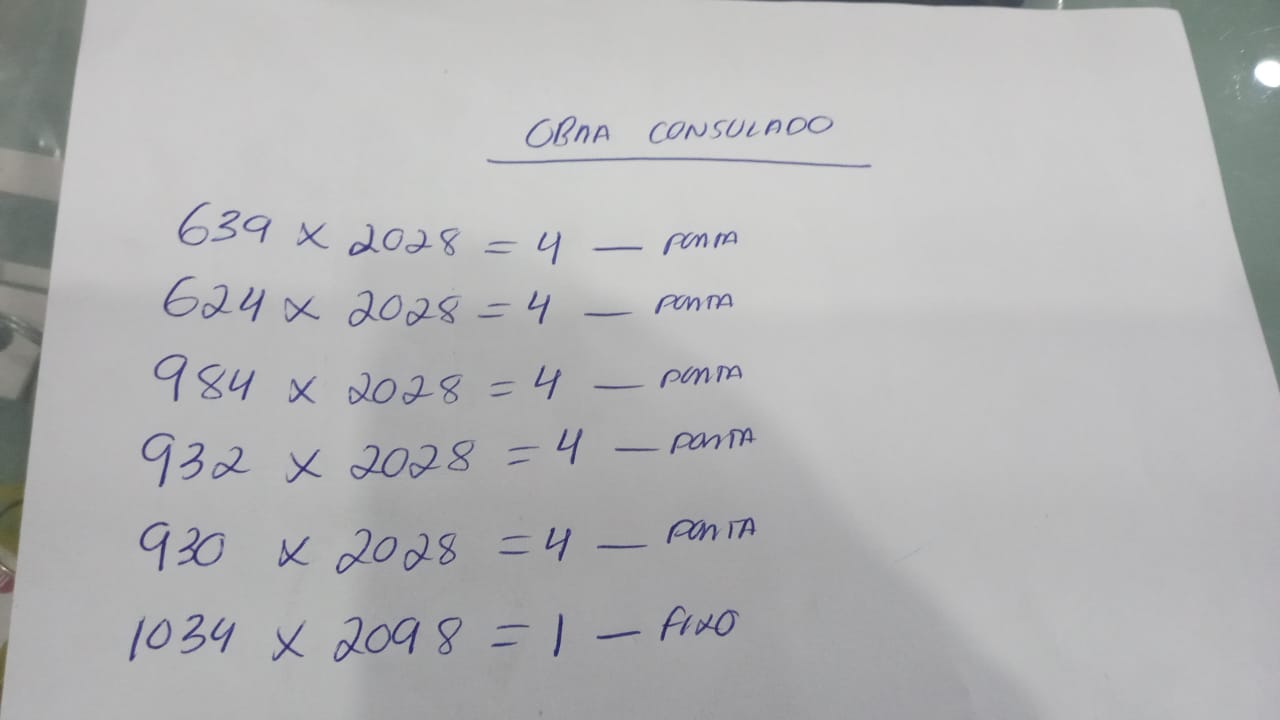 OBRA CONSULADO
639 x 2028 = 4 — PORTA
624 x 2028 = 4 — PORTA
984 x 2028 = 4 — PORTA
932 x 2028 = 4 — PORTA
930 x 2028 = 4 — PORTA
1034 x 2098 = 1 — FIXO